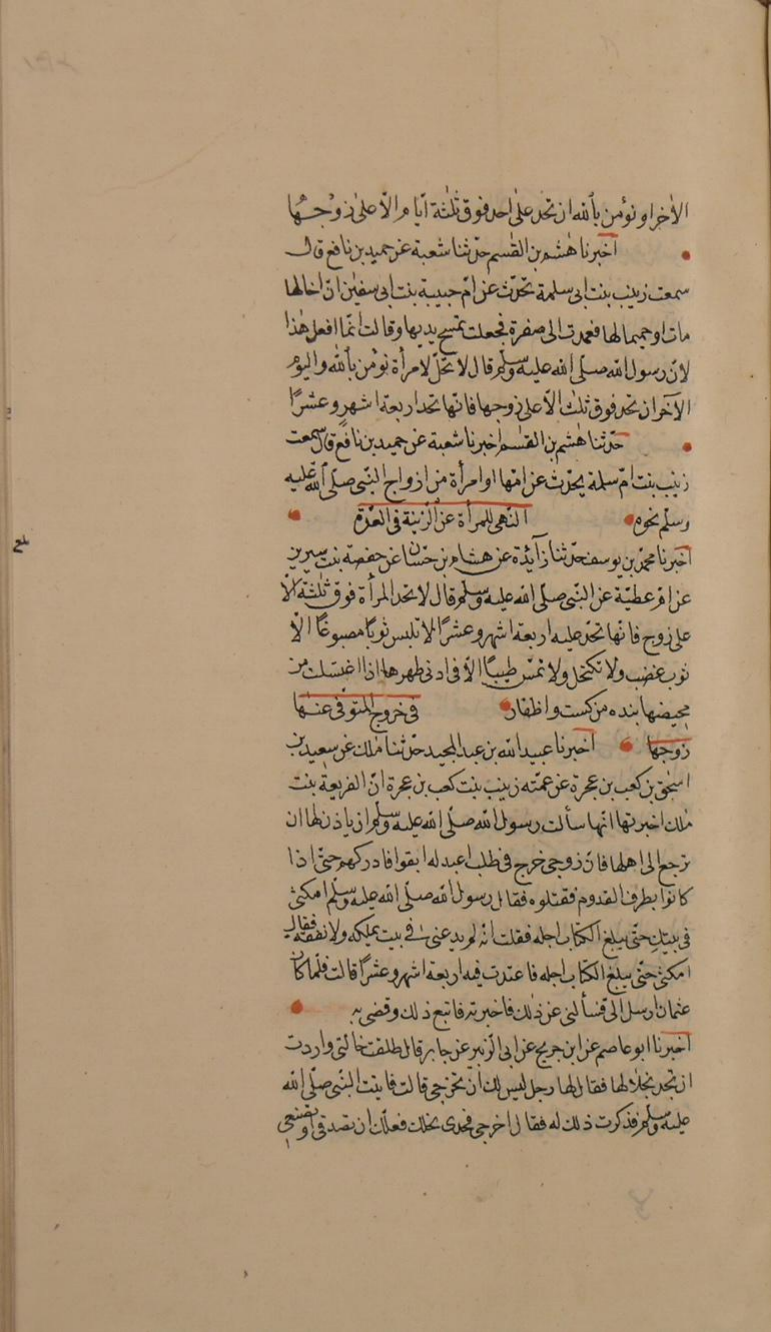 الاخر او تؤمن بالله ان تحد على احد فوق ثلثة ايام الا على زوجها
اخبرنا هشم بن القسم حدثنا شعبة عن حميد بن نافع قال
سمعت زينب بنت ابى سلمة تحدث عن ام حبيبة بنت ابى سفين ان اخا لها
مات او حميما لها فعمدت الى صفرة فجعلت تمسح يديها وقالت انما افعل هذا
لان رسول الله صلى الله عليه وسلم قال لا تحل لامرأة تؤمن بالله واليوم
الآخر ان تحد فوق ثلث الا على زوجها فانها تحد اربعة اشهر وعشرا
حدثنا هشم بن القسم اخبرنا شعبة عن حميد بن نافع قال سمعت
زينب بنت ام سلمة يحدث عن امها او امرأة من ازواج النبى صلى الله عليه
وسلم نحوه النهى للمرأة عن الزينة فى العدة
اخبرنا محمد بن يوسف حدثنا زآئدة عن هشام بن حسان عن حفصة بنت سيرين
عن ام عطية عن النبى صلى الله عليه وسلم قال لا تحد المرأة فوق ثلثة الا
على زوج فانها تحد عليه اربعة اشهر وعشرا لا تلبس ثوبا مصبوغا الا
ثوب عصب ولا تكتحل ولا تمس طيبا الا فى ادنى طهرها اذا اغتسلت من
محيضها نبذه من كست واظفار فى خروج المتوفى عنها
زوجها اخبرنا عبيد الله بن عبد المجيد حدثنا ملك عن سعيد بن
اسحق بن كعب بن عجرة عن عمته زينب بنت كعب بن عجرة ان الفريعة بنت
ملك اخبرتها انها سألت رسول الله صلى الله عليه وسلم ان ياذن لها ان
ترجع الى اهلها فان زوجى خرج فى طلب اعبد له ابقوا فادركهم حتى اذا
كانوا بطرف القدوم فقتلوه فقال رسول الله صلى الله عليه وسلم امكثى
فى بيتك حتى يبلغ الكتاب اجله فقلت انه لم يدعنى فى بيت يملكه ولا نفقة فقال
امكثى حتى يبلغ الكتاب اجله فاعتدت فيه اربعة اشهر وعشرا قالت فلما كان
عثمان ارسل الى فسألنى عن ذلك فاخبرته فاتبع ذلك وقضى به
اخبرنا ابو عاصم عن ابن جريج عن ابى الزبير عن جابر قال طلقت خالتى واردت
ان تجد نخلا لها فقال لها رجل ليس لك ان تخرجى قالت فاتيت النبى صلى الله
عليه وسلم فذكرت ذلك له فقال اخرجى فجدى نخلك فعلك ان تصدقى او تصنعى